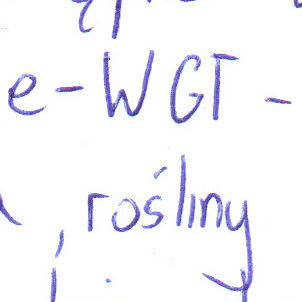 e-WGT-
, rośliny